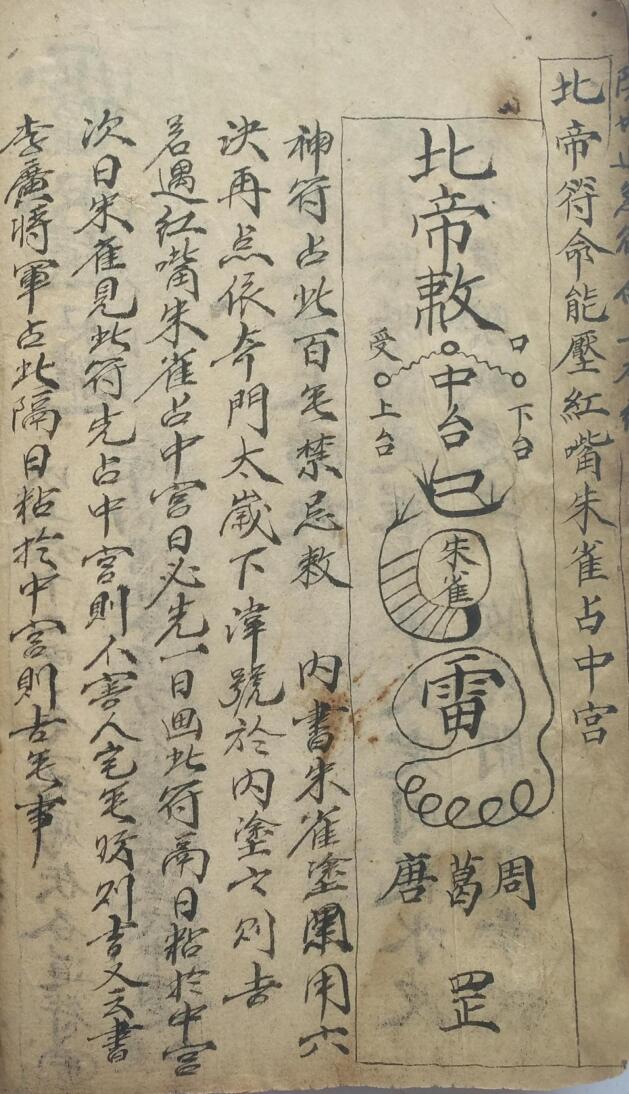 北帝符命能壓紅嘴朱雀占中宮
北帝敕
口
下台
中台
受
上台
巳
朱雀
雷
周
葛
唐
罡
神符占此百无禁忌敕 内書朱雀塗黑用六
決再点依奇門太歲下諱號於內塗之則吉
若遇紅嘴朱雀占中宮日必先一日画此符鬲日粘於中宮
次日朱雀見此符先占中宮則不害人宅无妨則吉又云書
李廣將軍占此隔日粘於中宮則吉无事